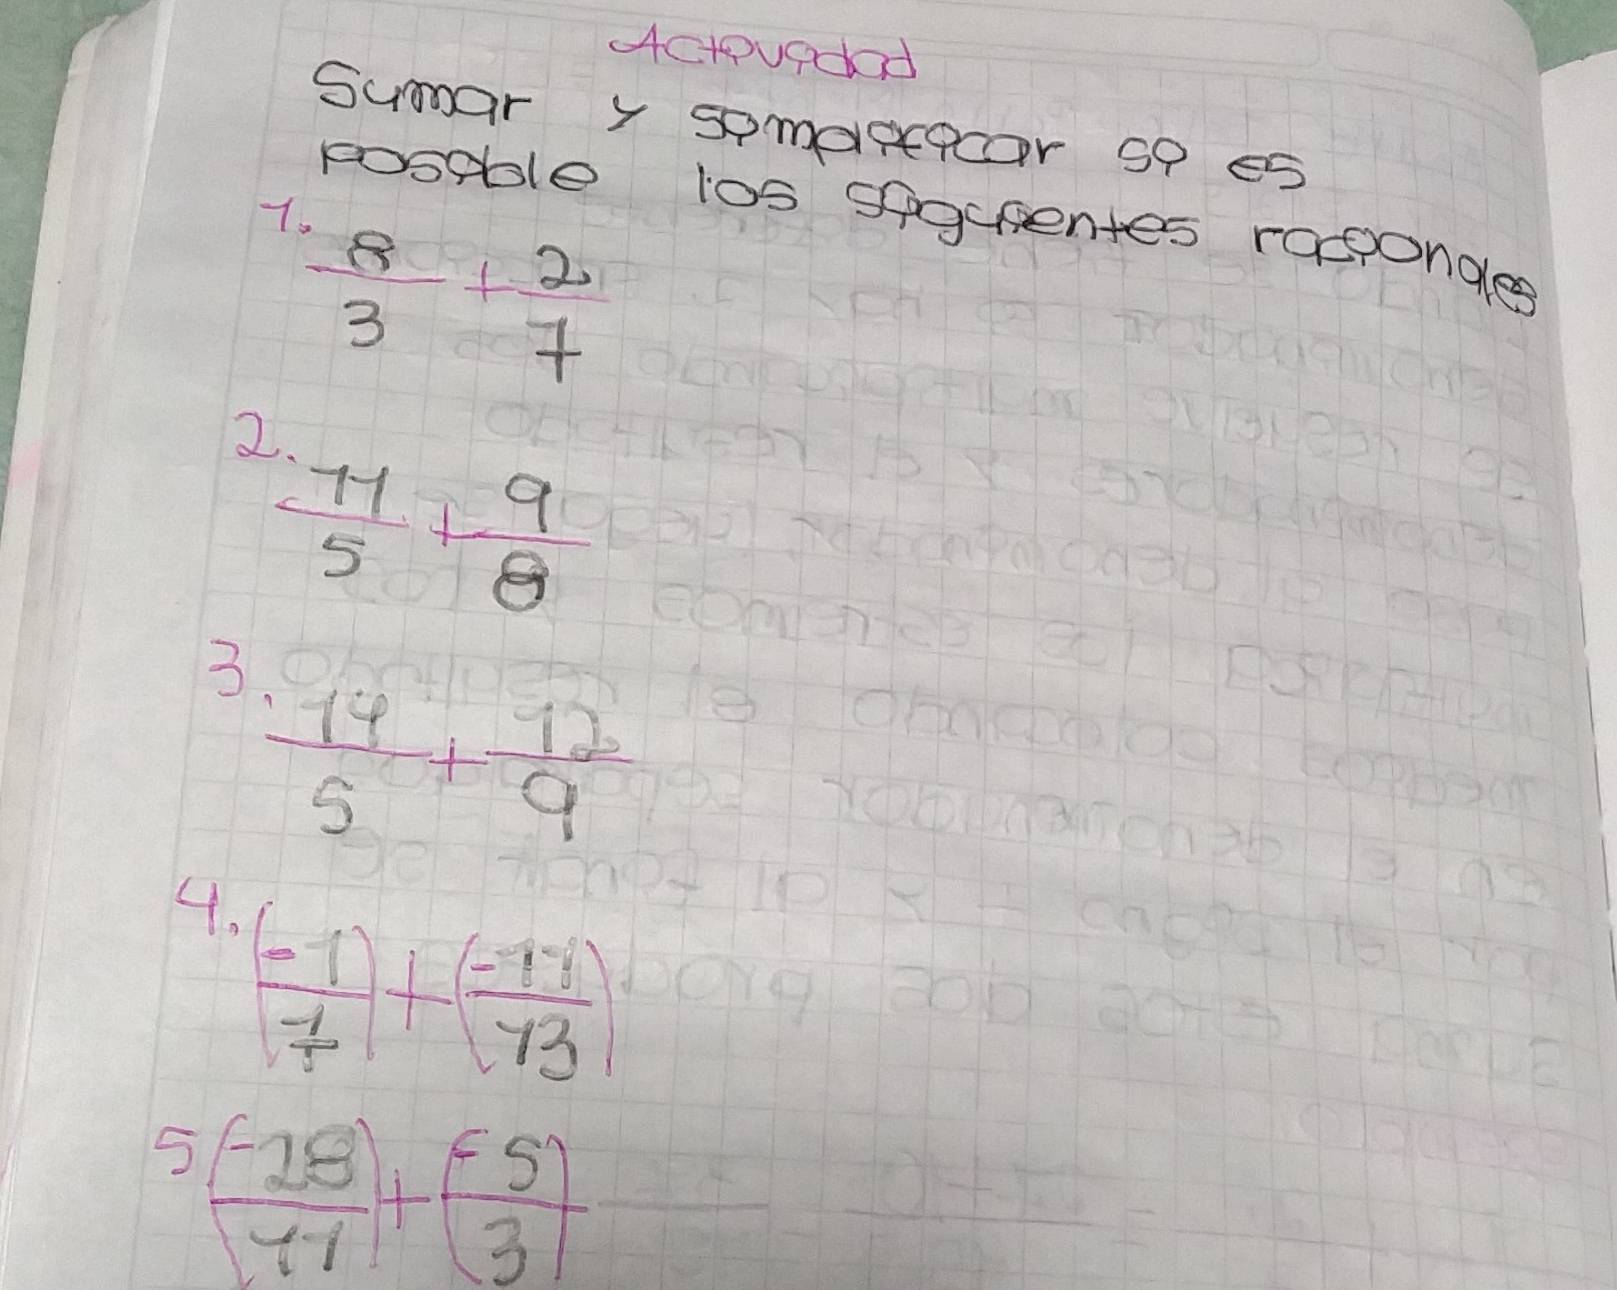 Actividad
Sumar y simplificar si es
posible los siguientes racionales
1. 8/3 + 2/7
2. 11/5 + 9/8
3. 14/5 + 12/9
4. (-1/7) + (-11/13)
5 (-28/11) + (-5/3)